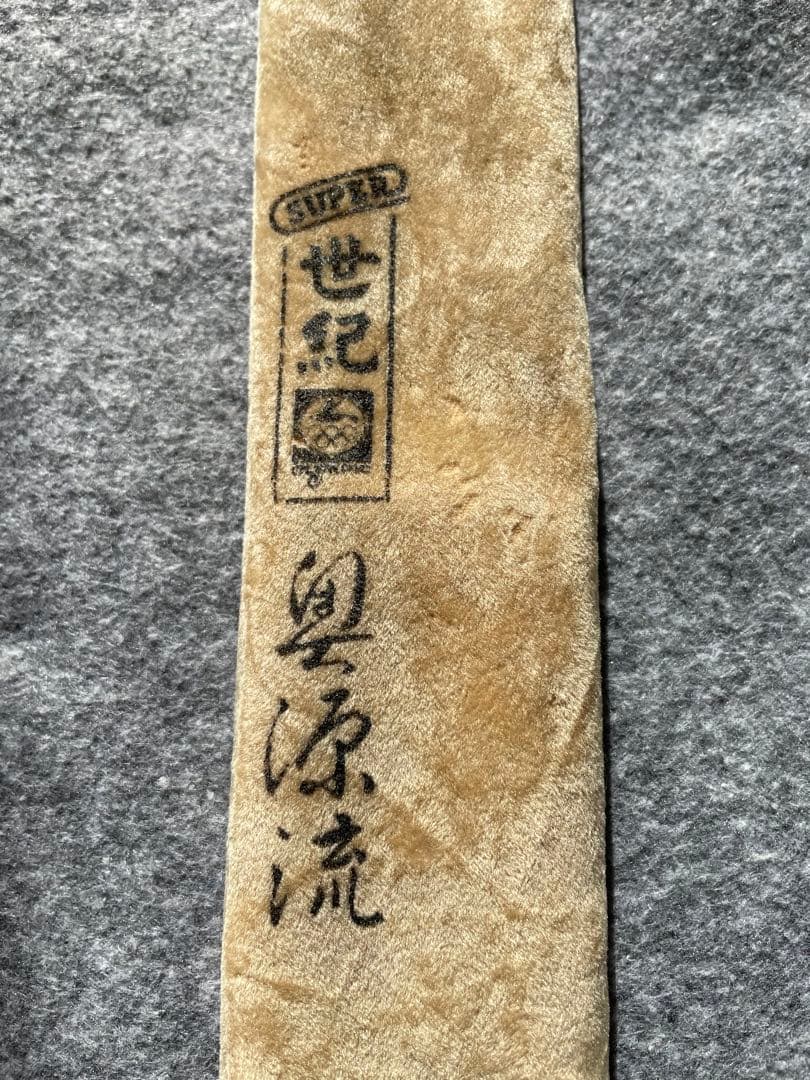 SUPER
世紀
奥源流